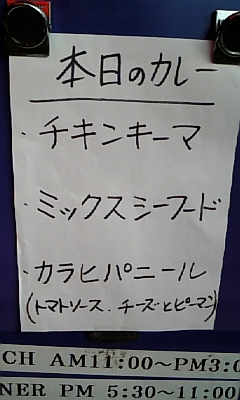 本日のカレー
・チキンキーマ
・ミックスシーフード
・カラヒパニール
(トマトソース、チーズとピーマン)
CH AM11:00〜PM3:0
NER PM 5:30〜11:00